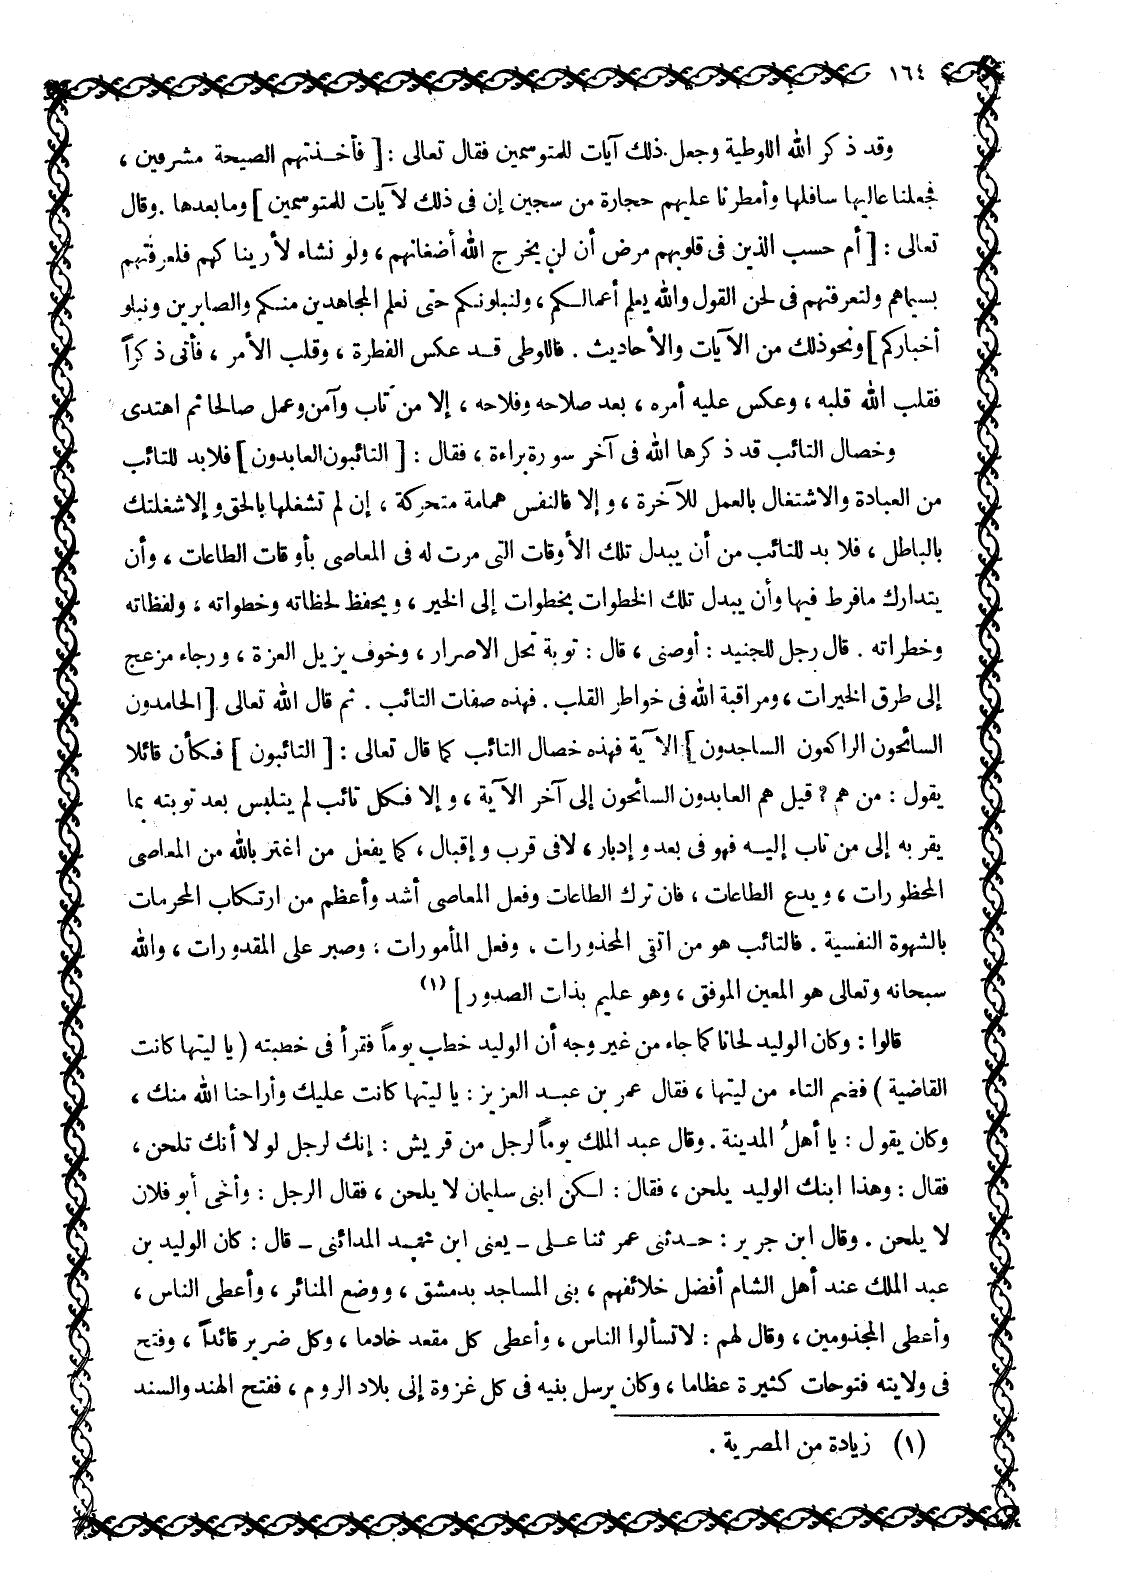 ١٦٤
وقد ذكر الله اللوطية وجعل ذلك آيات للمتوسمين فقال تعالى : [ فأخذتهم الصيحة مشرفين ،
فجعلنا عاليها سافلها وأمطرنا عليهم حجارة من سجين إن فى ذلك لآيات للمتوسمين ] وما بعدها . وقال
تعالى : [ أم حسب الذين فى قلوبهم مرض أن لن يخرج الله أضغانهم ، ولو نشاء لأريناكهم فلعرفتهم
بسيماهم ولتعرفتهم فى لحن القول والله يعلم أعمالكم ، ولنبلونكم حتى نعلم المجاهدين منكم والصابرين ونبلو
أخباركم ] ونحو ذلك من الآيات والأحاديث . فاللوطى قد عكس الفطرة ، وقلب الأمر ، فأتى ذكراً
فقلب الله قلبه ، وعكس عليه أمره ، بعد صلاحه وفلاحه ، إلا من تاب وآمن وعمل صالحا ثم اهتدى
وخصال التائب قد ذكرها الله فى آخر سورة براءة ، فقال : [ التائبون العابدون ] فلا بد للتائب
من العبادة والاشتغال بالعمل للآخرة ، وإلا فالنفس همامة متحركة ، إن لم تشغلها بالحق وإلا شغلتك
بالباطل ، فلا بد للتائب من أن يبدل تلك الأوقات التى مرت له فى المعاصى بأوقات الطاعات ، وأن
يتدارك ما فرط فيها وأن يبدل تلك الخطوات بخطوات إلى الخير ، ويحفظ لحظاته وخطواته ، ولفظاته
وخطراته . قال رجل للجنيد : أوصنى ، قال : توبة تحل الاصرار ، وخوف يزيل العزة ، ورجاء مزعج
إلى طرق الخيرات ، ومراقبة الله فى خواطر القلب . فهذه صفات التائب . ثم قال الله تعالى [ الحامدون
السائحون الراكعون الساجدون ] الآية فهذه خصال التائب كما قال تعالى : [ التائبون ] فكأن قائلا
يقول : من هم ؟ قيل هم العابدون السائحون إلى آخر الآية ، وإلا فكل تائب لم يتلبس بعد توبته بما
يقربه إلى من تاب إليه فهو فى بعد وإدبار ، لا فى قرب وإقبال ، كما يفعل من اغتر بالله من المعاصى
المحظورات ، ويدع الطاعات ، فان ترك الطاعات وفعل المعاصى أشد وأعظم من ارتكاب المحرمات
بالشهوة النفسية . فالتائب هو من اتقى المحذورات . وفعل المأمورات ؛ وصبر على المقدورات ، والله
سبحانه وتعالى هو المعين الموفق ، وهو عليم بذات الصدور ] (١)
قالوا : وكان الوليد لحانا كما جاء من غير وجه أن الوليد خطب يوماً فقرأ فى خطبته ( يا ليتها كانت
القاضية ) فضم التاء من ليتها ، فقال عمر بن عبد العزيز : يا ليتها كانت عليك وأراحنا الله منك ،
وكان يقول : يا أهلُ المدينة . وقال عبد الملك يوماً لرجل من قريش : إنك لرجل لولا أنك تلحن ،
فقال : وهذا ابنك الوليد يلحن ، فقال : لكن ابنى سليمان لا يلحن ، فقال الرجل : وأخى أبو فلان
لا يلحن . وقال ابن جرير : حدثنى عمر ثنا على ـ يعنى ابن محمد المدائنى ـ قال : كان الوليد بن
عبد الملك عند أهل الشام أفضل خلائفهم ، بنى المساجد بدمشق ، ووضع المنائر ، وأعطى الناس ،
وأعطى المجذومين ، وقال لهم : لا تسألوا الناس ، وأعطى كل مقعد خادما ، وكل ضرير قائداً ، وفتح
فى ولايته فتوحات كثيرة عظاما ، وكان يرسل بنيه فى كل غزوة إلى بلاد الروم ، ففتح الهند والسند
(١) زيادة من المصرية .